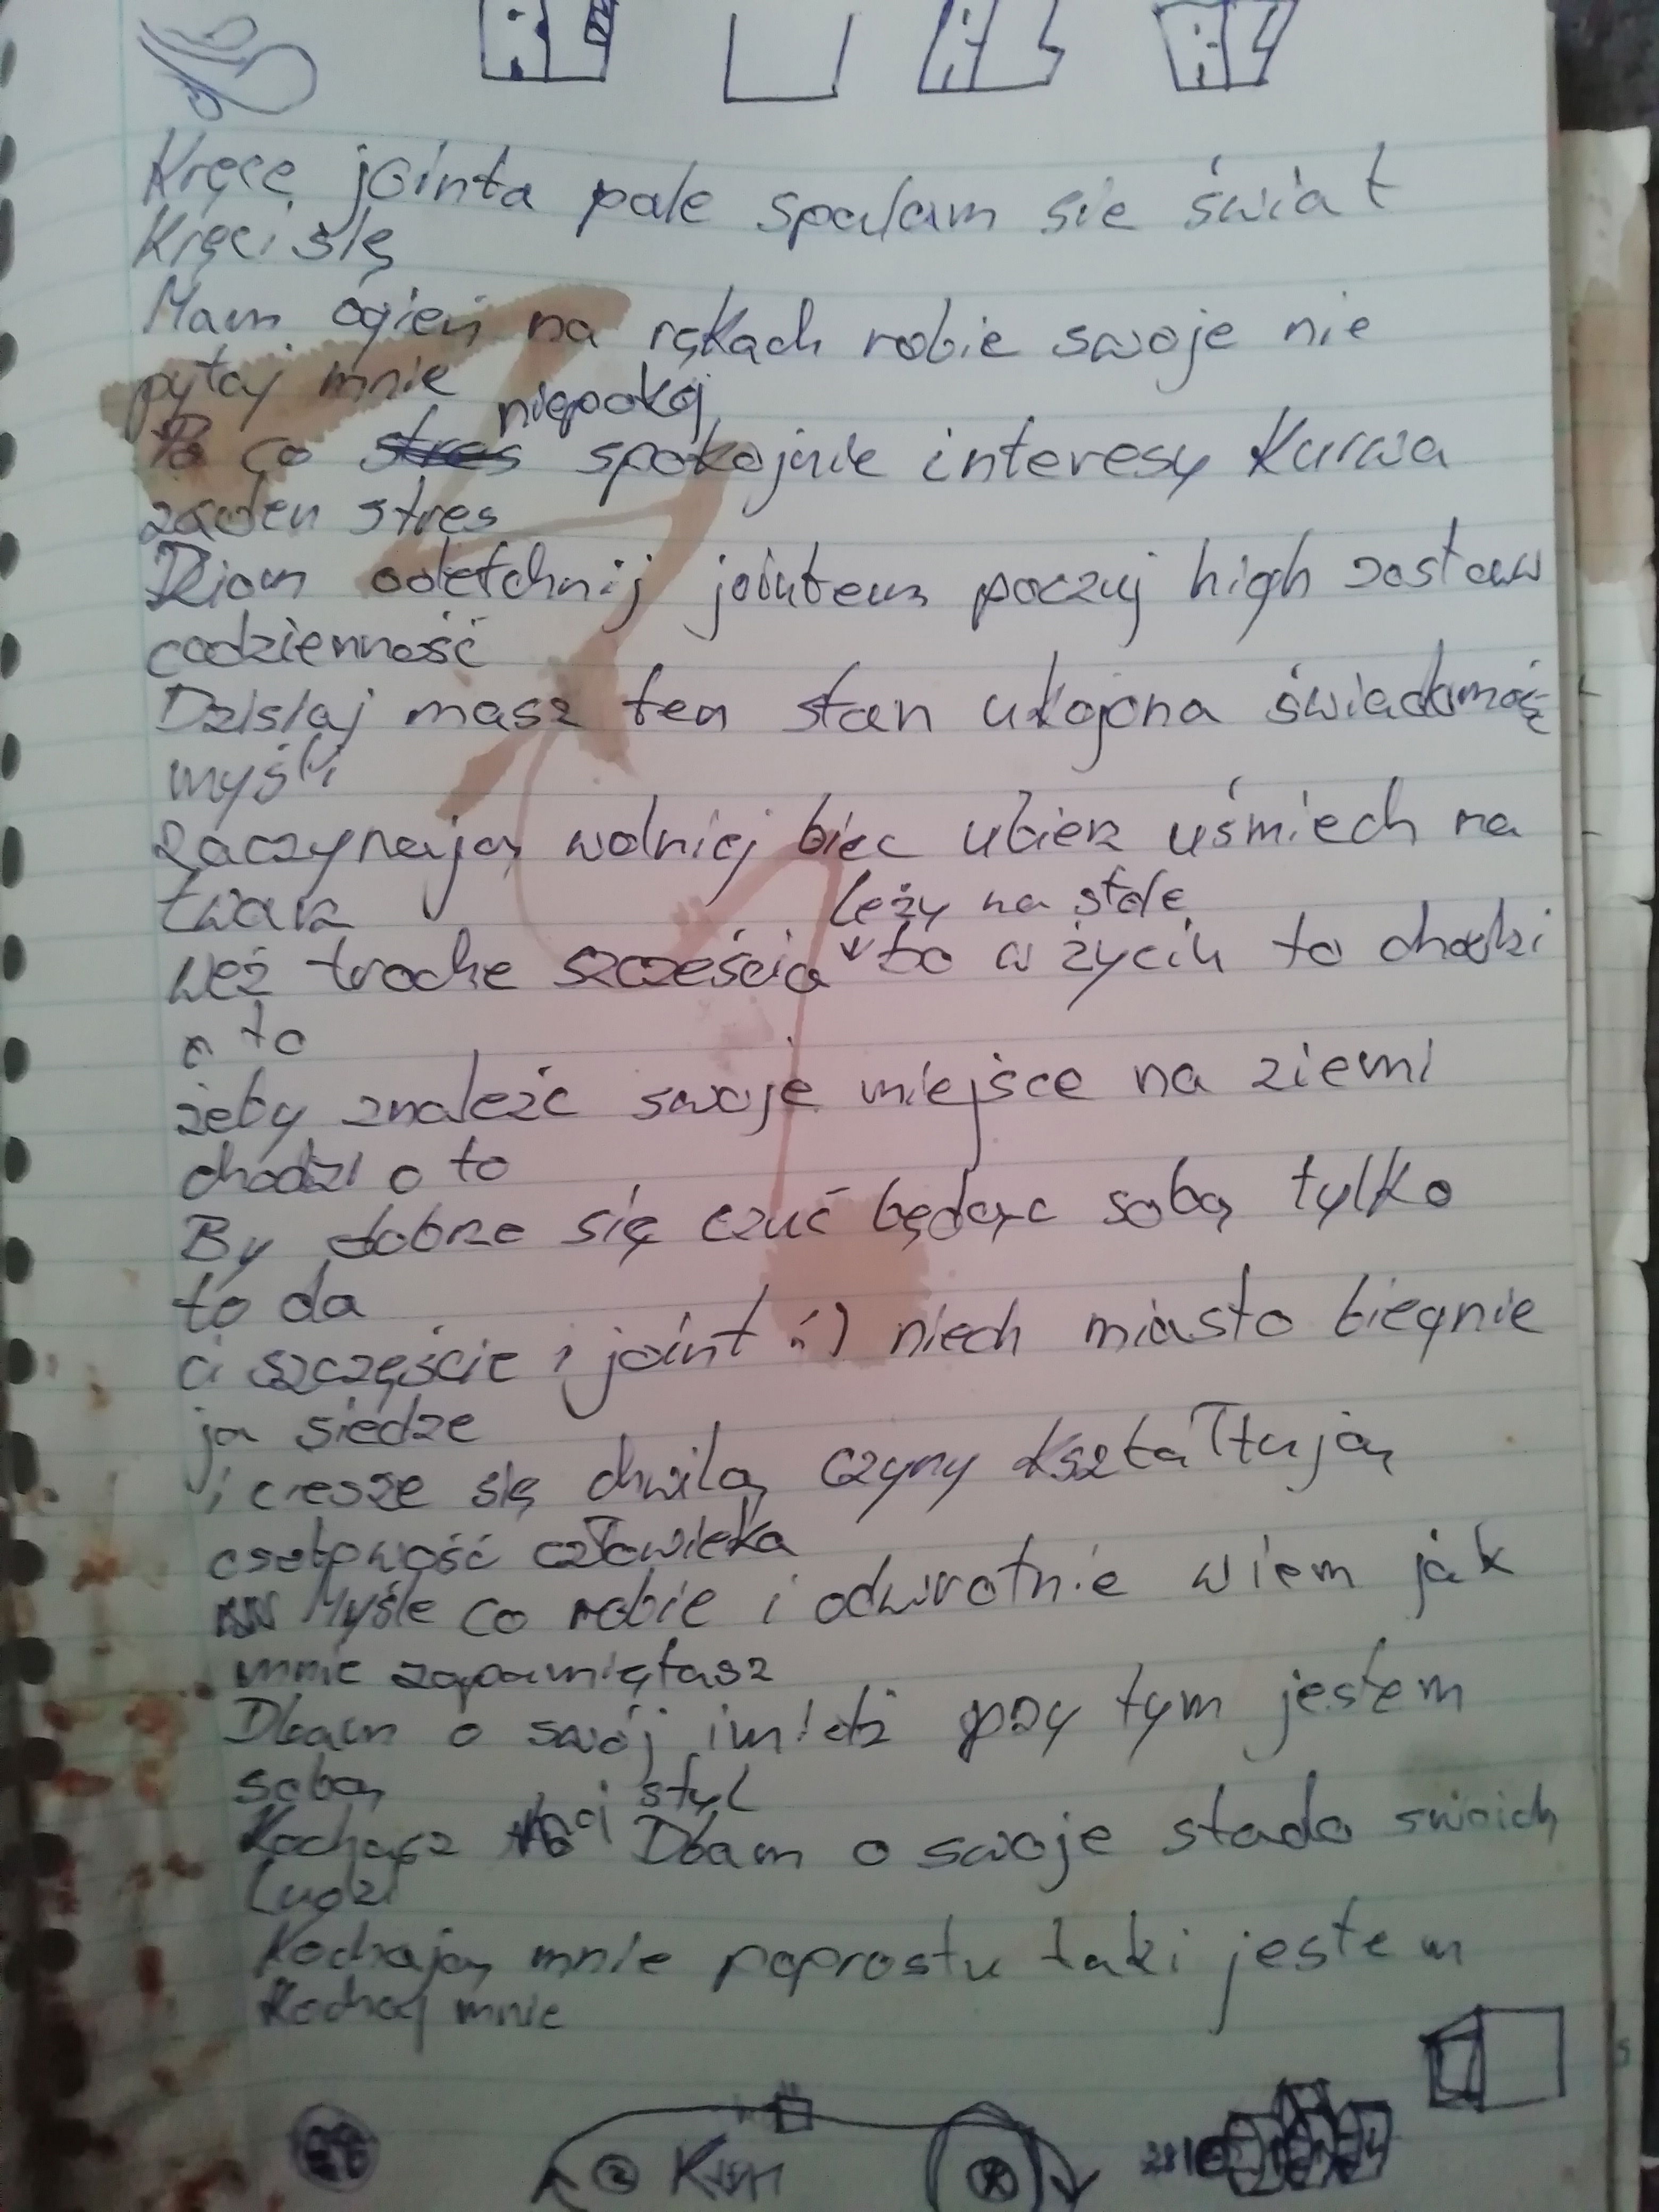 Kręcę jointa pale spalam sie świat
Kręci się
Mam ogień na rękach robie swoje nie
pytaj mnie
niepokój
Po co stres spokojnie interesy kurwa
żaden stres
Ziom odetchnij jointem poczuj high zostaw
codzienność
Dzisiaj masz ten stan ukojona świadomość
myśli
zaczynają wolniej biec ubierz uśmiech na
twarz
leży na stole
weź troche szcześcia bo w życiu to chodzi
o to
żeby znaleźć swoje miejsce na ziemi
chodzi o to
By dobrze się czuć będąc sobą tylko
to da
ci szczęście i joint :) niech miasto biegnie
ja siedze
i ciesze się chwilą czyny kształtują
osobowość człowieka
Myśle co robie i odwrotnie wiem jak
mnie zapamiętasz
Dbam o swój imidż przy tym jestem
sobą
styl
Kochasz Dbam o swoje stado swoich
Ludzi
Kochają mnie poprostu taki jestem
Kochaj mnie